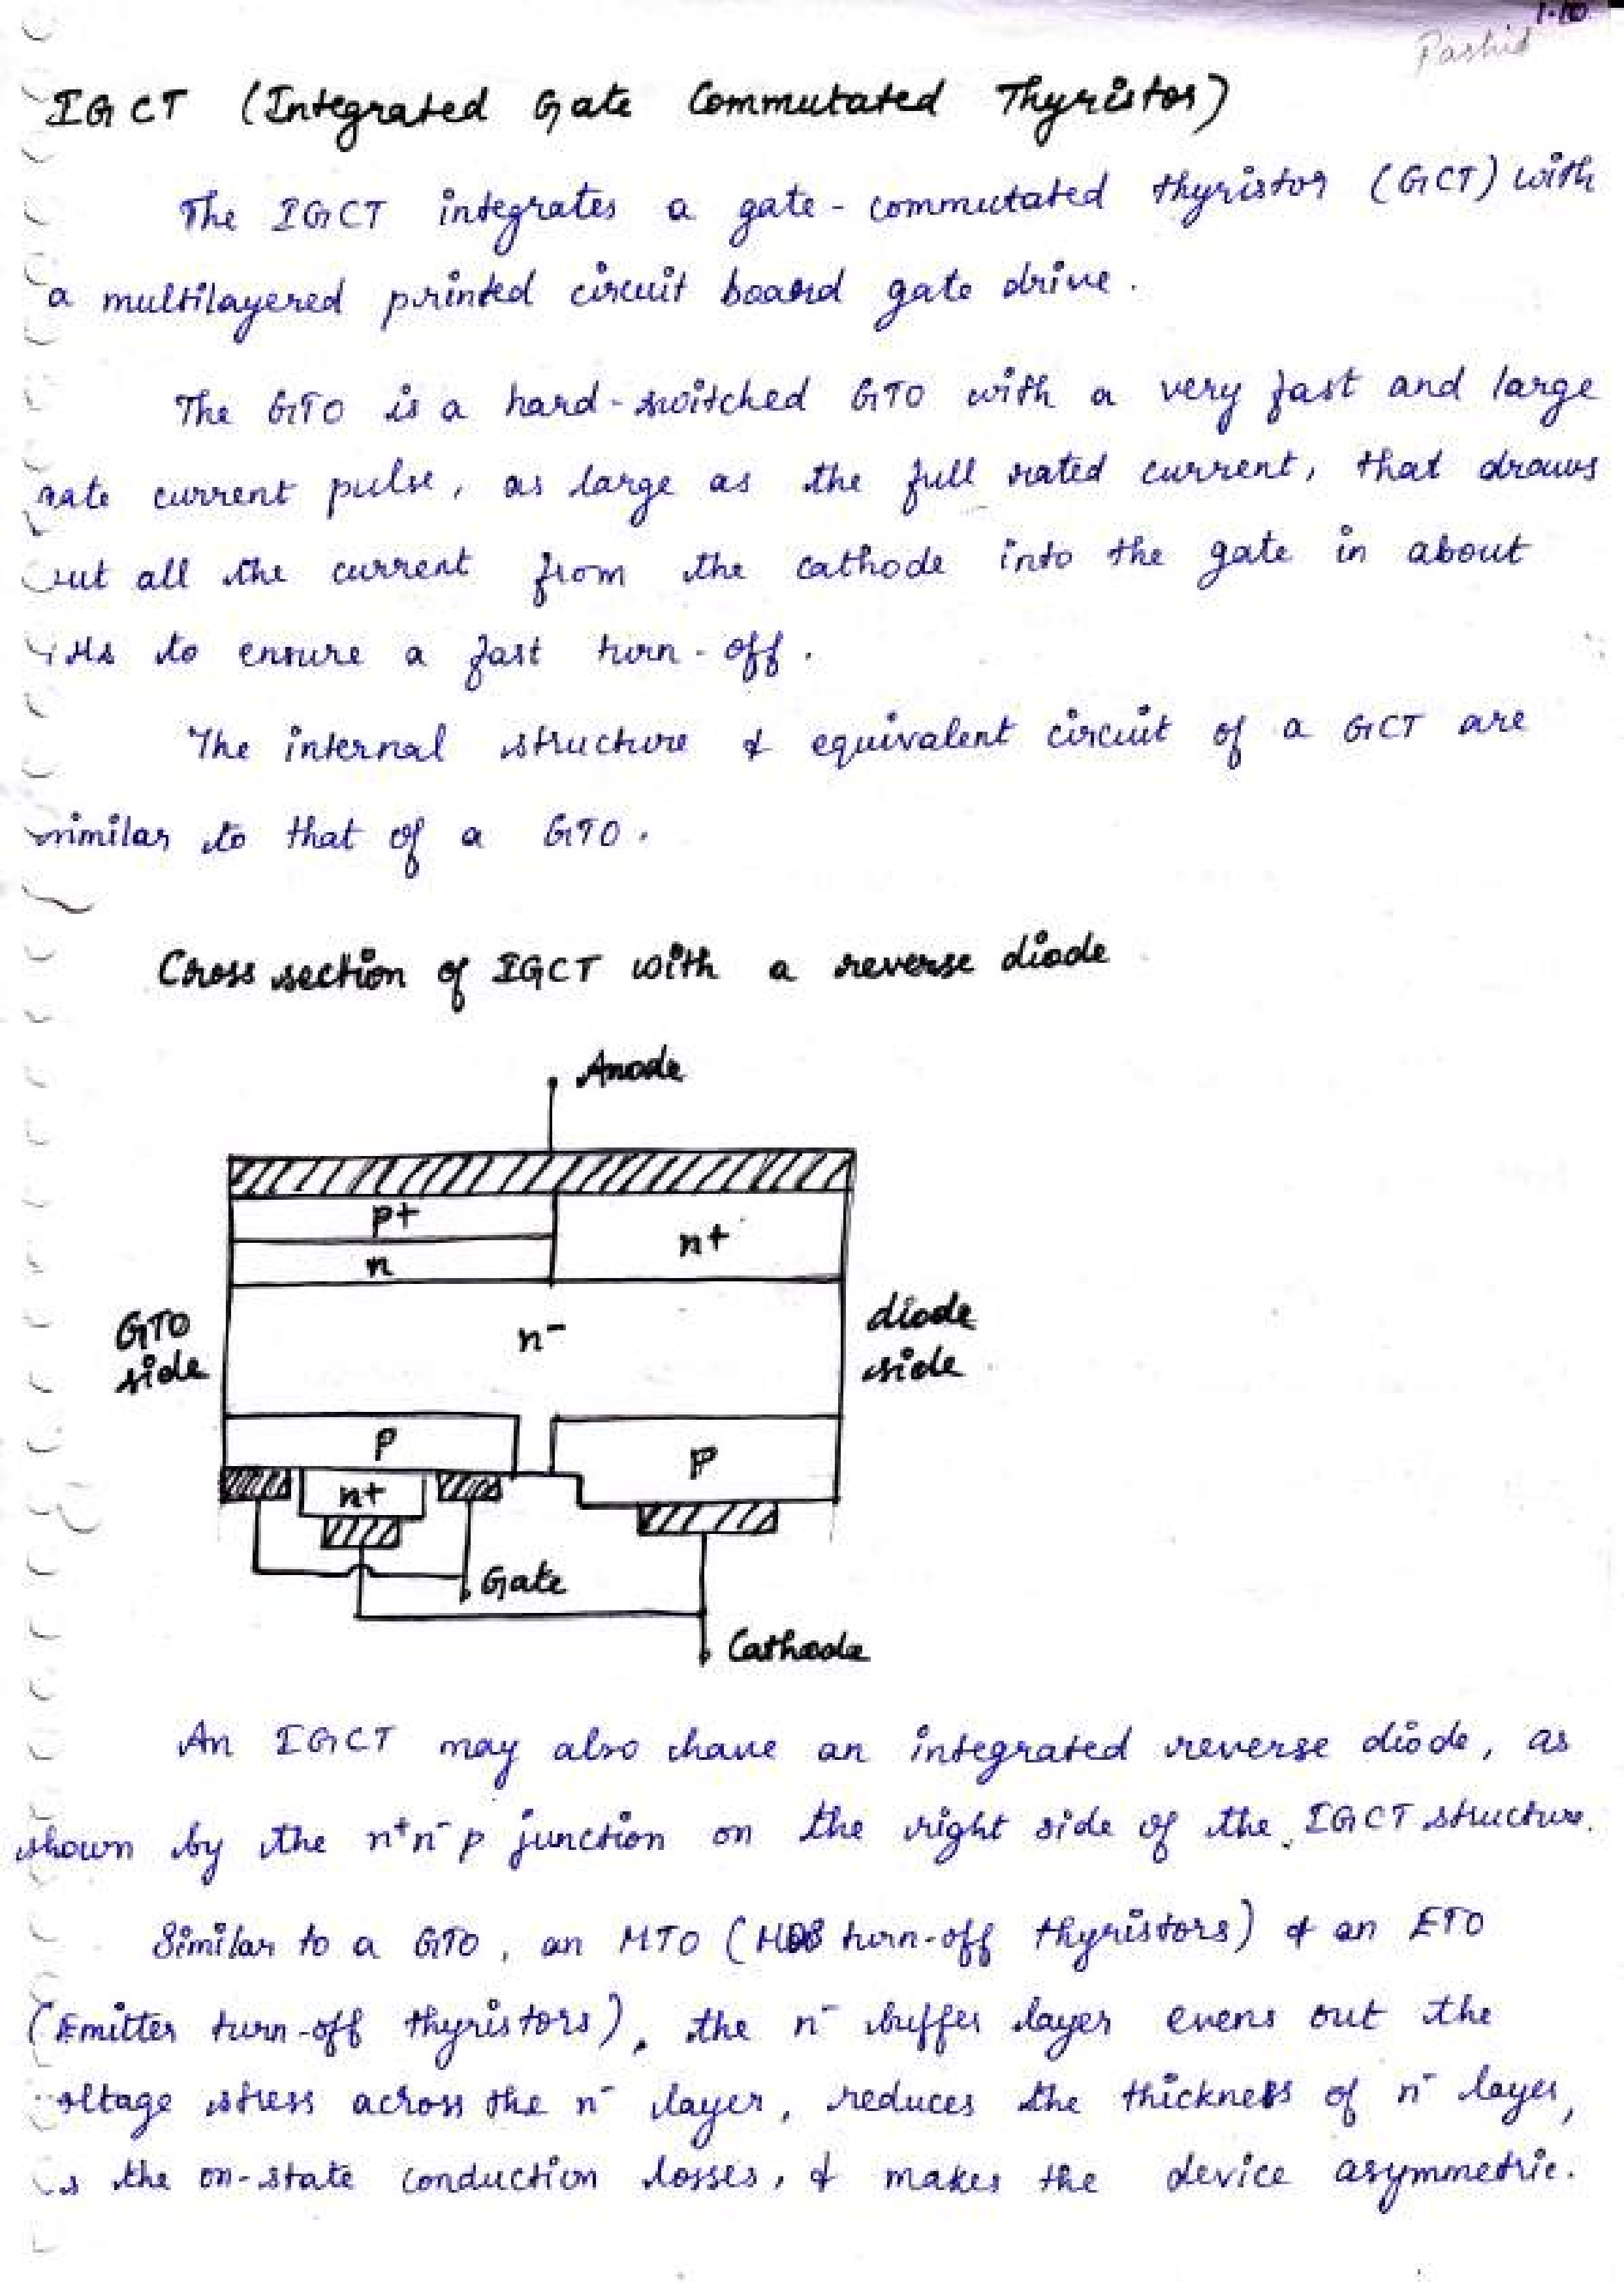 1.10
Rashid
IGCT (Integrated Gate Commutated Thyristor)
The IGCT integrates a gate-commutated thyristor (GCT) with
a multilayered printed circuit board gate drive.
The GTO is a hard-switched GTO with a very fast and large
gate current pulse, as large as the full rated current, that draws
out all the current from the cathode into the gate in about
1 μs to ensure a fast turn-off.
The internal structure & equivalent circuit of a GCT are
similar to that of a GTO.
Cross section of IGCT with a reverse diode
Anode
p+
n+
n
GTO
side
n-
diode
side
P
P
n+
Gate
Cathode
An IGCT may also have an integrated reverse diode, as
shown by the n+n-p junction on the right side of the IGCT structure.
Similar to a GTO, an MTO (MOS turn-off thyristors) & an ETO
(Emitter turn-off thyristors), the n- buffer layer evens out the
voltage stress across the n- layer, reduces the thickness of n- layer,
the on-state conduction losses, & makes the device asymmetric.